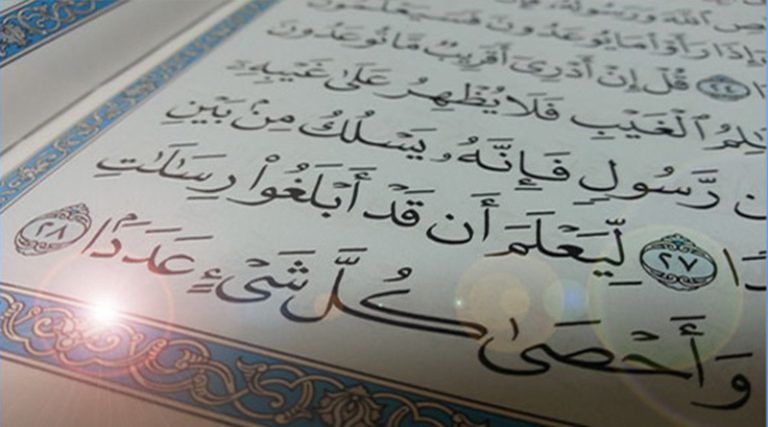 ٱللَّهَ وَرَسُولَهُۥ
إِذَا رَأَوْا۟ مَا يُوعَدُونَ فَسَيَعْلَمُونَ
٢٤ قُلْ إِنْ أَدْرِىٓ أَقَرِيبٌ مَّا تُوعَدُونَ
ٱلْغَيْبِ فَلَا يُظْهِرُ عَلَىٰ غَيْبِهِۦٓ
رَّسُولٍ فَإِنَّهُۥ يَسْلُكُ مِنۢ بَيْنِ
٢٧ لِّيَعْلَمَ أَن قَدْ أَبْلَغُوا۟ رِسَٰلَٰتِ
وَأَحْصَىٰ كُلَّ شَىْءٍ عَدَدًۢا ٢٨